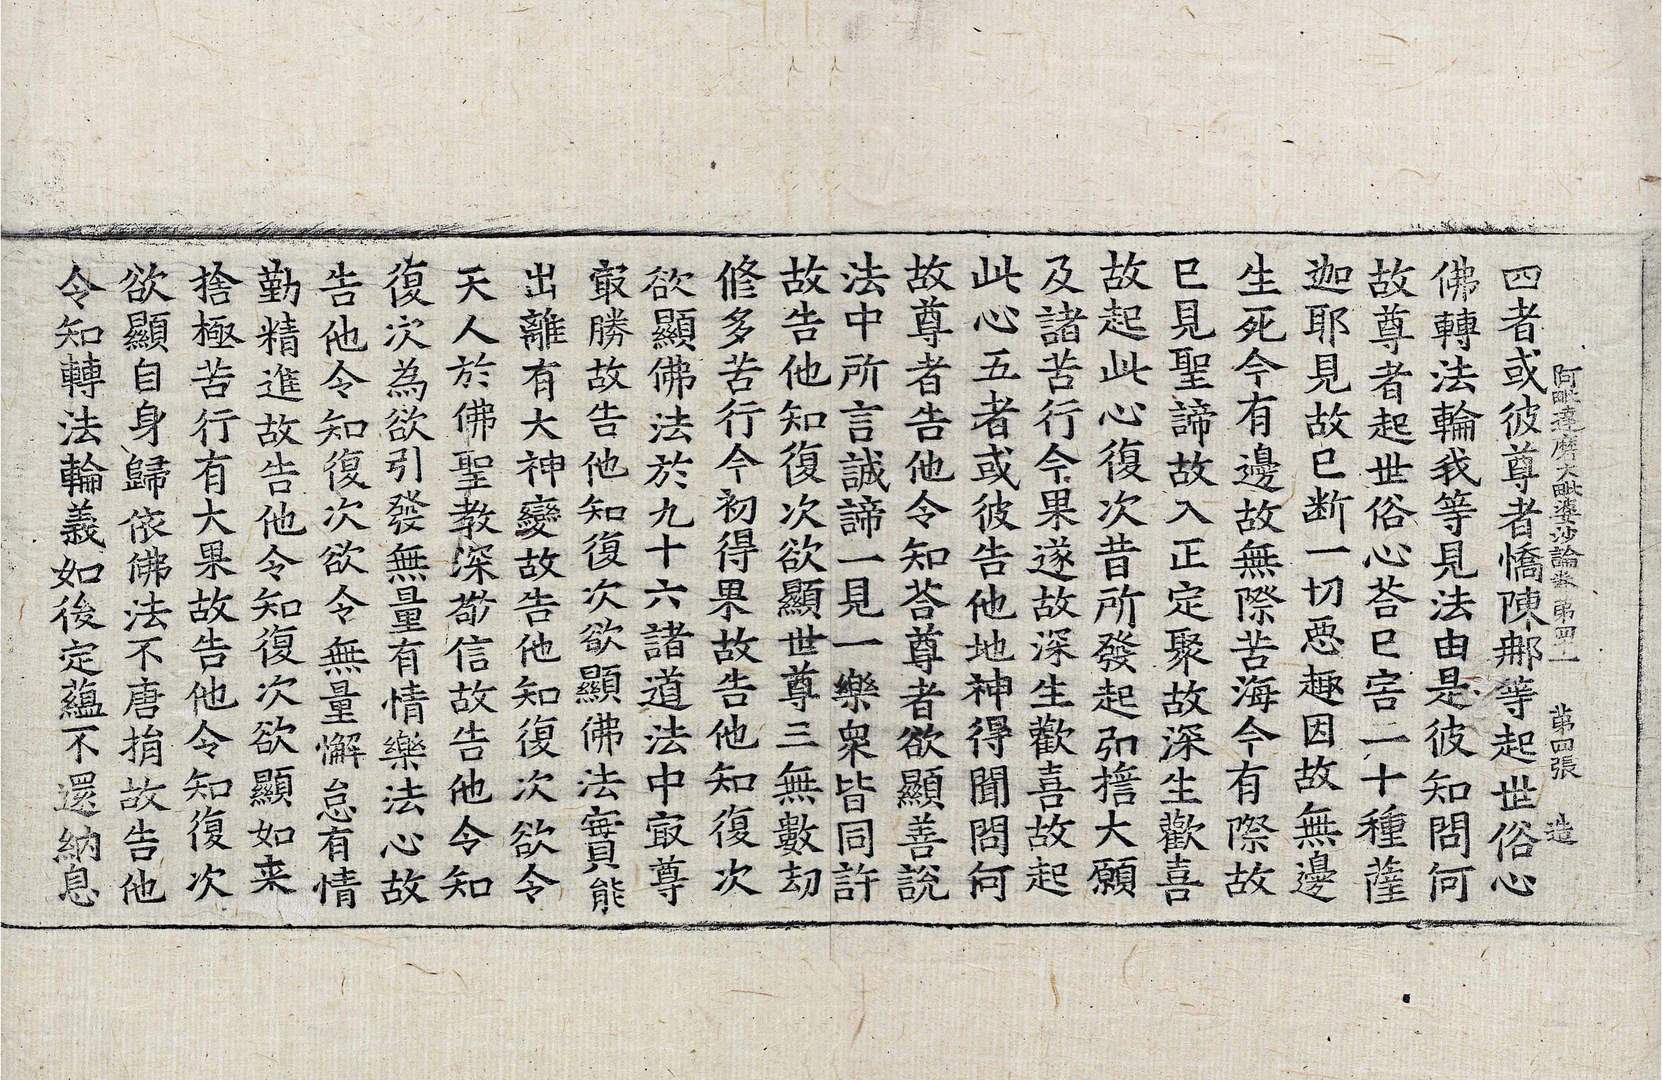 阿毗達磨大毗婆沙論卷第四十一　第四張　造
四者或彼尊者憍陳那等起世俗心
佛轉法輪我等見法由是彼知問何
故尊者起世俗心荅巳害二十種薩
迦耶見故巳断一切惡趣因故無邊
生死今有邊故無際苦海今有際故
巳見聖諦故入正定聚故深生歡喜
故起此心復次昔所發起弘擔大願
及諸苦行今果遂故深生歡喜故起
此心五者或彼告他地神得聞問何
故尊者告他令知荅尊者欲顯善說
法中所言誠諦一見一樂衆皆同許
故告他知復次欲顯世尊三無數劫
修多苦行今初得果故告他知復次
欲顯佛法於九十六諸道法中㝡尊
㝡勝故告他知復次欲顯佛法實能
出離有大神變故告他知復次欲令
天人於佛聖教深敬信故告他令知
復次為欲引發無量有情樂法心故
告他令知復次欲令無量懈怠有情
勤精進故告他令知復次欲顯如来
捨極苦行有大果故告他令知復次
欲顯自身歸依佛法不唐捐故告他
令知轉法輪義如後定蘊不還納息